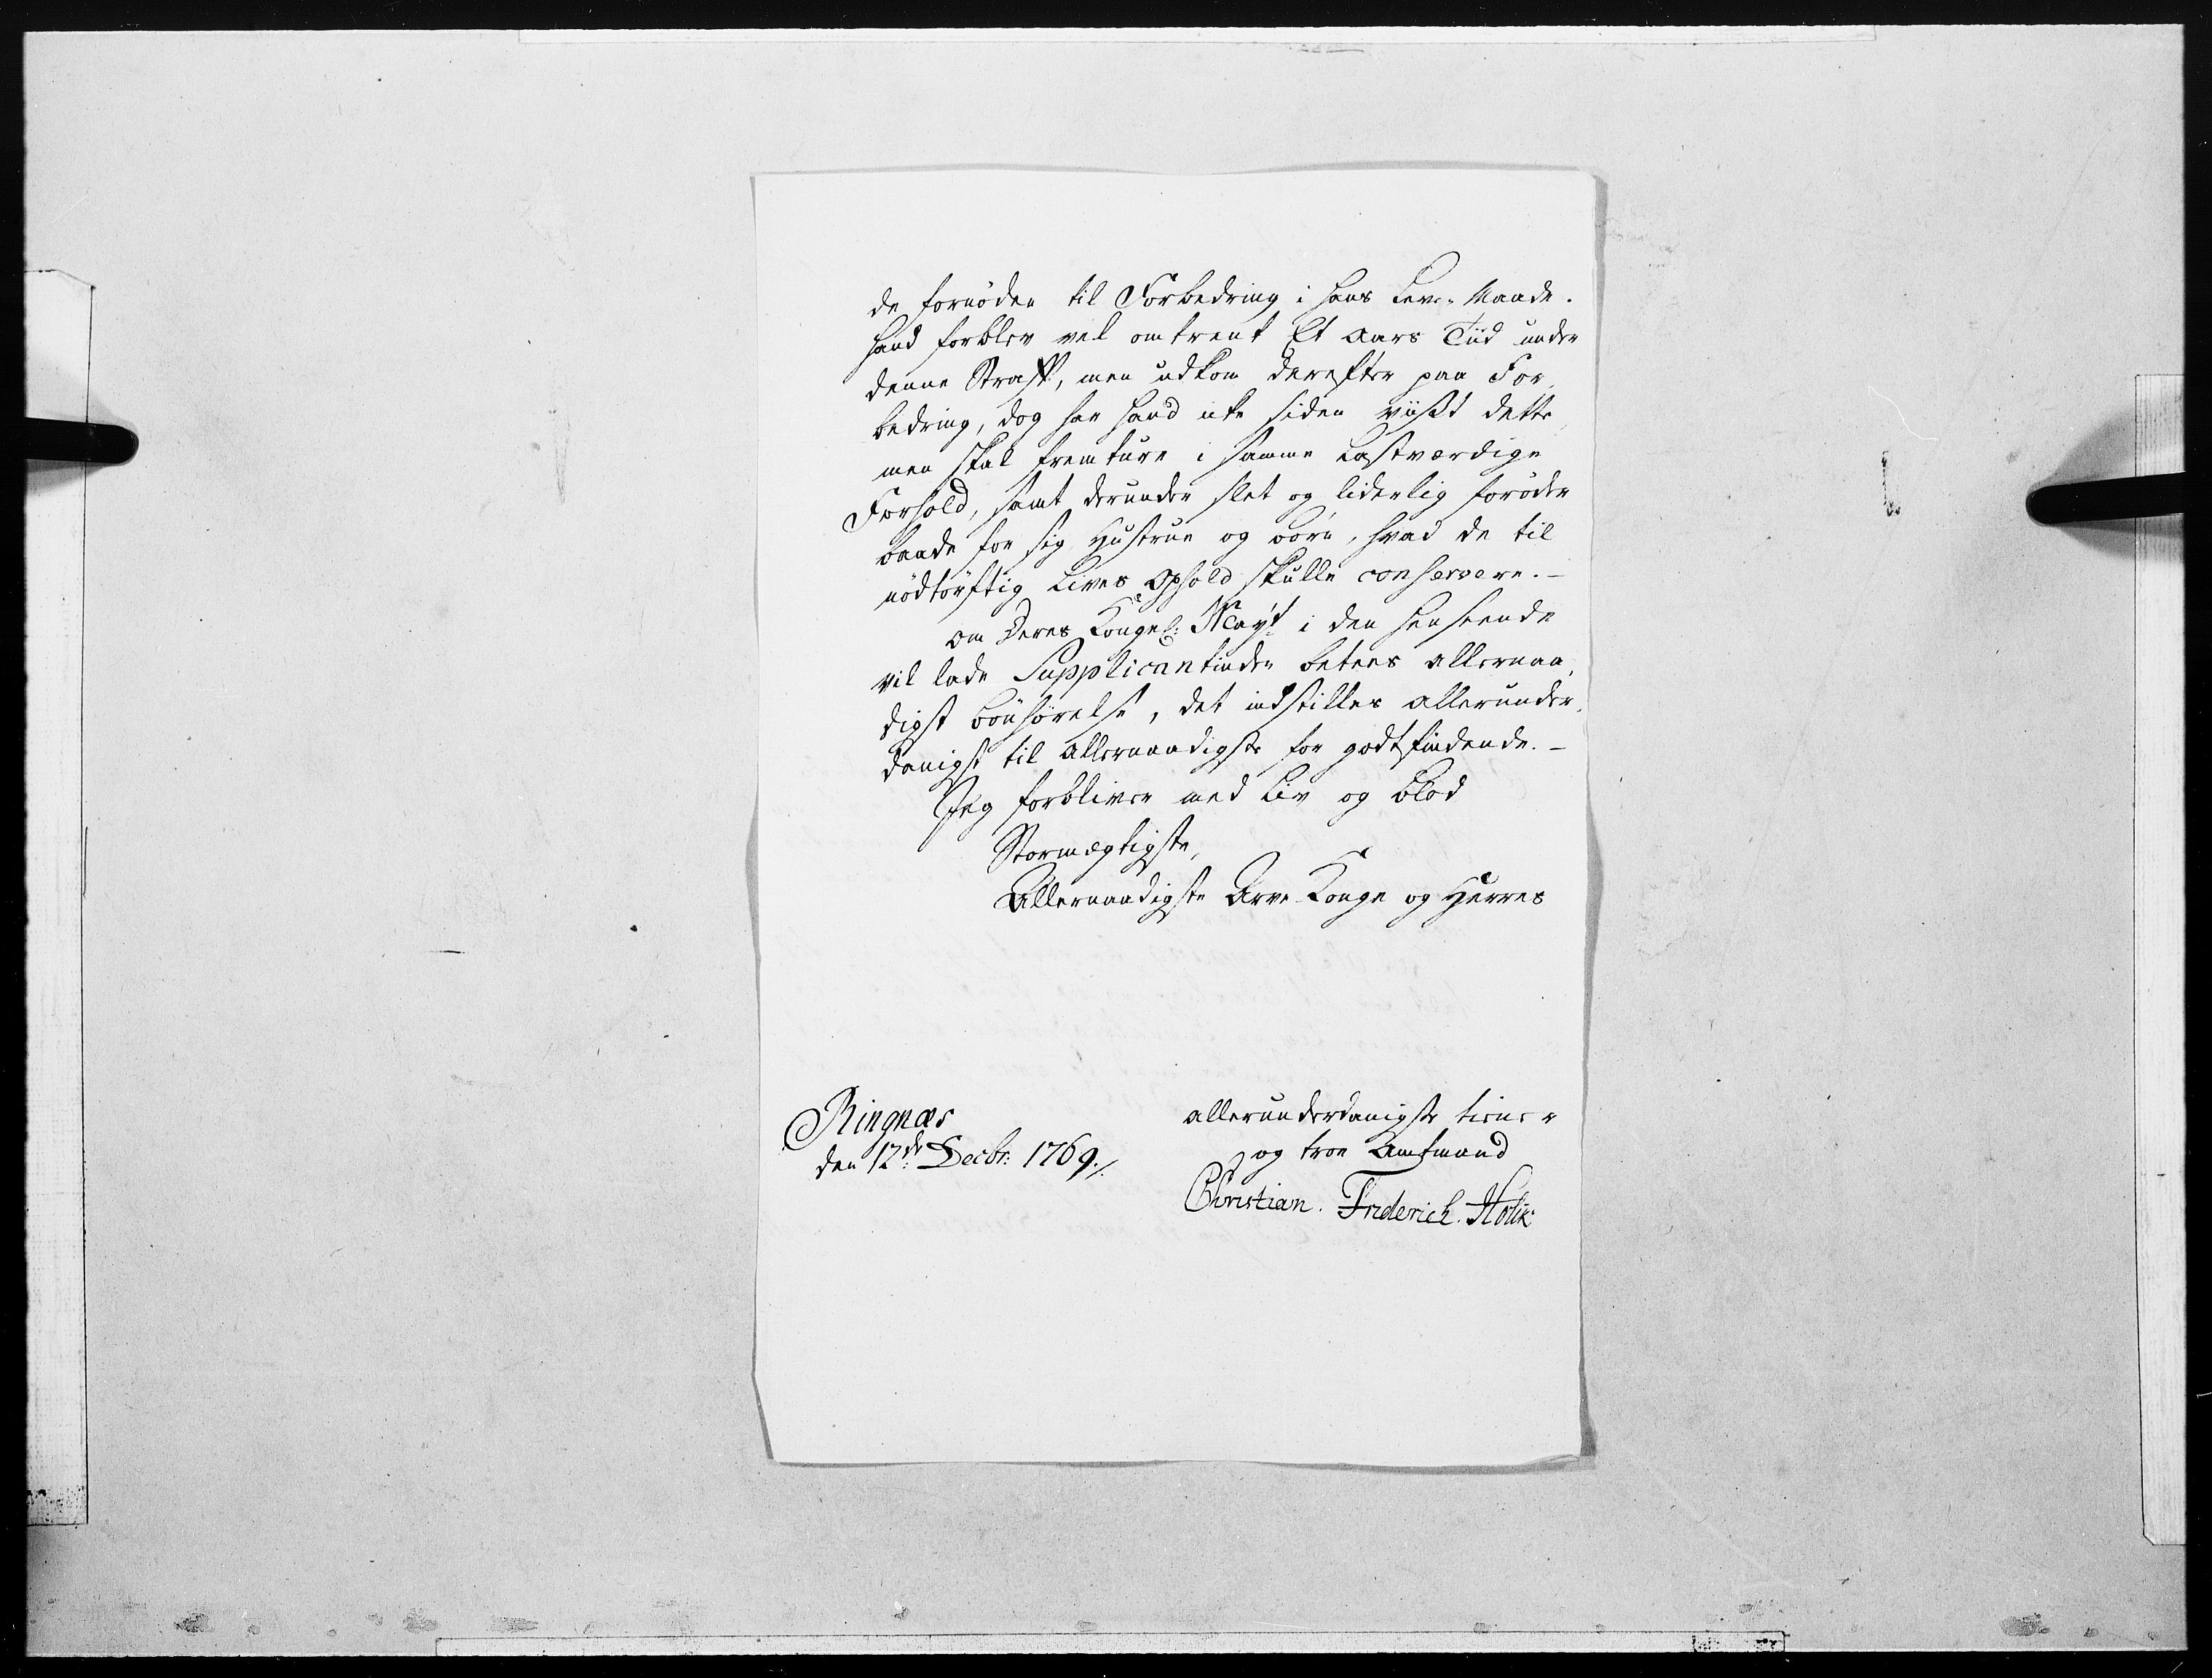 de fornøden til Forbedring i hans Leve-Maade.
Hand forblev vel omtrent Et Aars Tiid under
denne Straff, men udkom derefter paa For,
bedring, dog har Hand icke siden viist dette,
men skal fremture i samme Lastværdige
Forhold, samt derunder slet og liderlig forøder
baade for sig Hustrue og Børn, hvad de til
nødtørftig Livs Ophold skulle conservere. –
Om Deres Kongel: May:t i den henseende
vil lade Supplicantinden betees allernaa,
digst bønhørelse, det indstilles allerunder,
danigst til allernaadigste for godtfindende. –
Jeg forbliver med Liv og Blod
Stormægtigste,
Allernaadigste Arve Konge og Herres
allerunderdanigste tiener
og troe Amtmand
Christian. Friderich. Holck
Ringnæs
den 12de Decbr: 1769./.